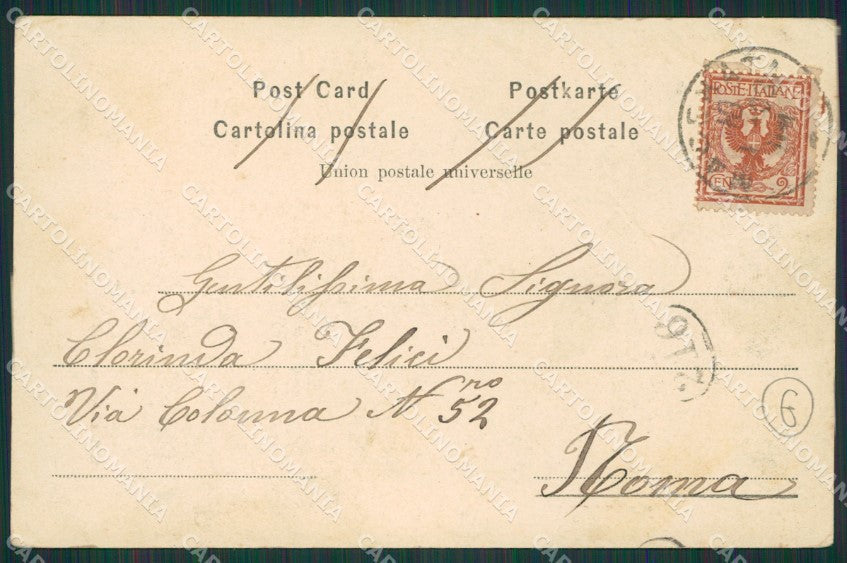 Post Card
Postkarte
Cartolina postale
Carte postale
Union postale universelle
POSTE·ITALIANE
2
Gentilissima Signora
Clorinda Felici
Via Colonna Nno 52
Roma
6
CARTOLINOMANIA